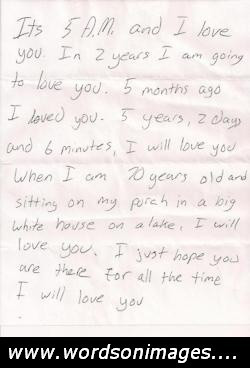 Its 5 A.M. and I love
you. In 2 years I am going
to love you. 5 months ago
I loved you. 5 years, 2 days
and 6 minutes, I will love you
When I am 70 years old and
sitting on my porch in a big
white house on a lake, I will
love you. I just hope you
are there for all the time
I will love you
www.wordsonimages....